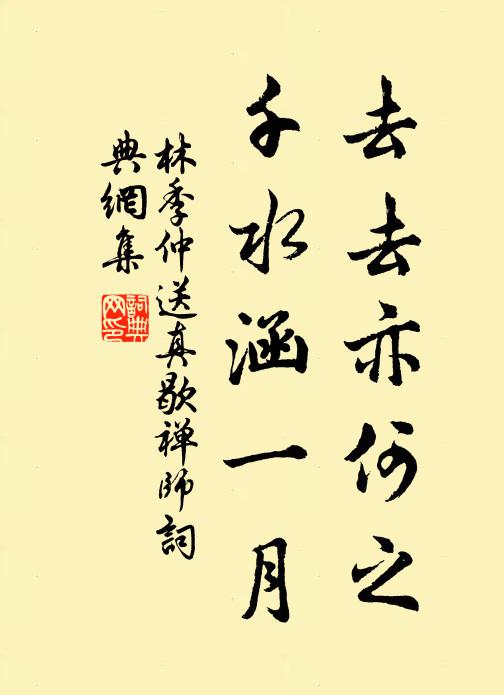 去去亦何之
千水涵一月
林季仲送真歇禅师詞
典網集
詞典网印